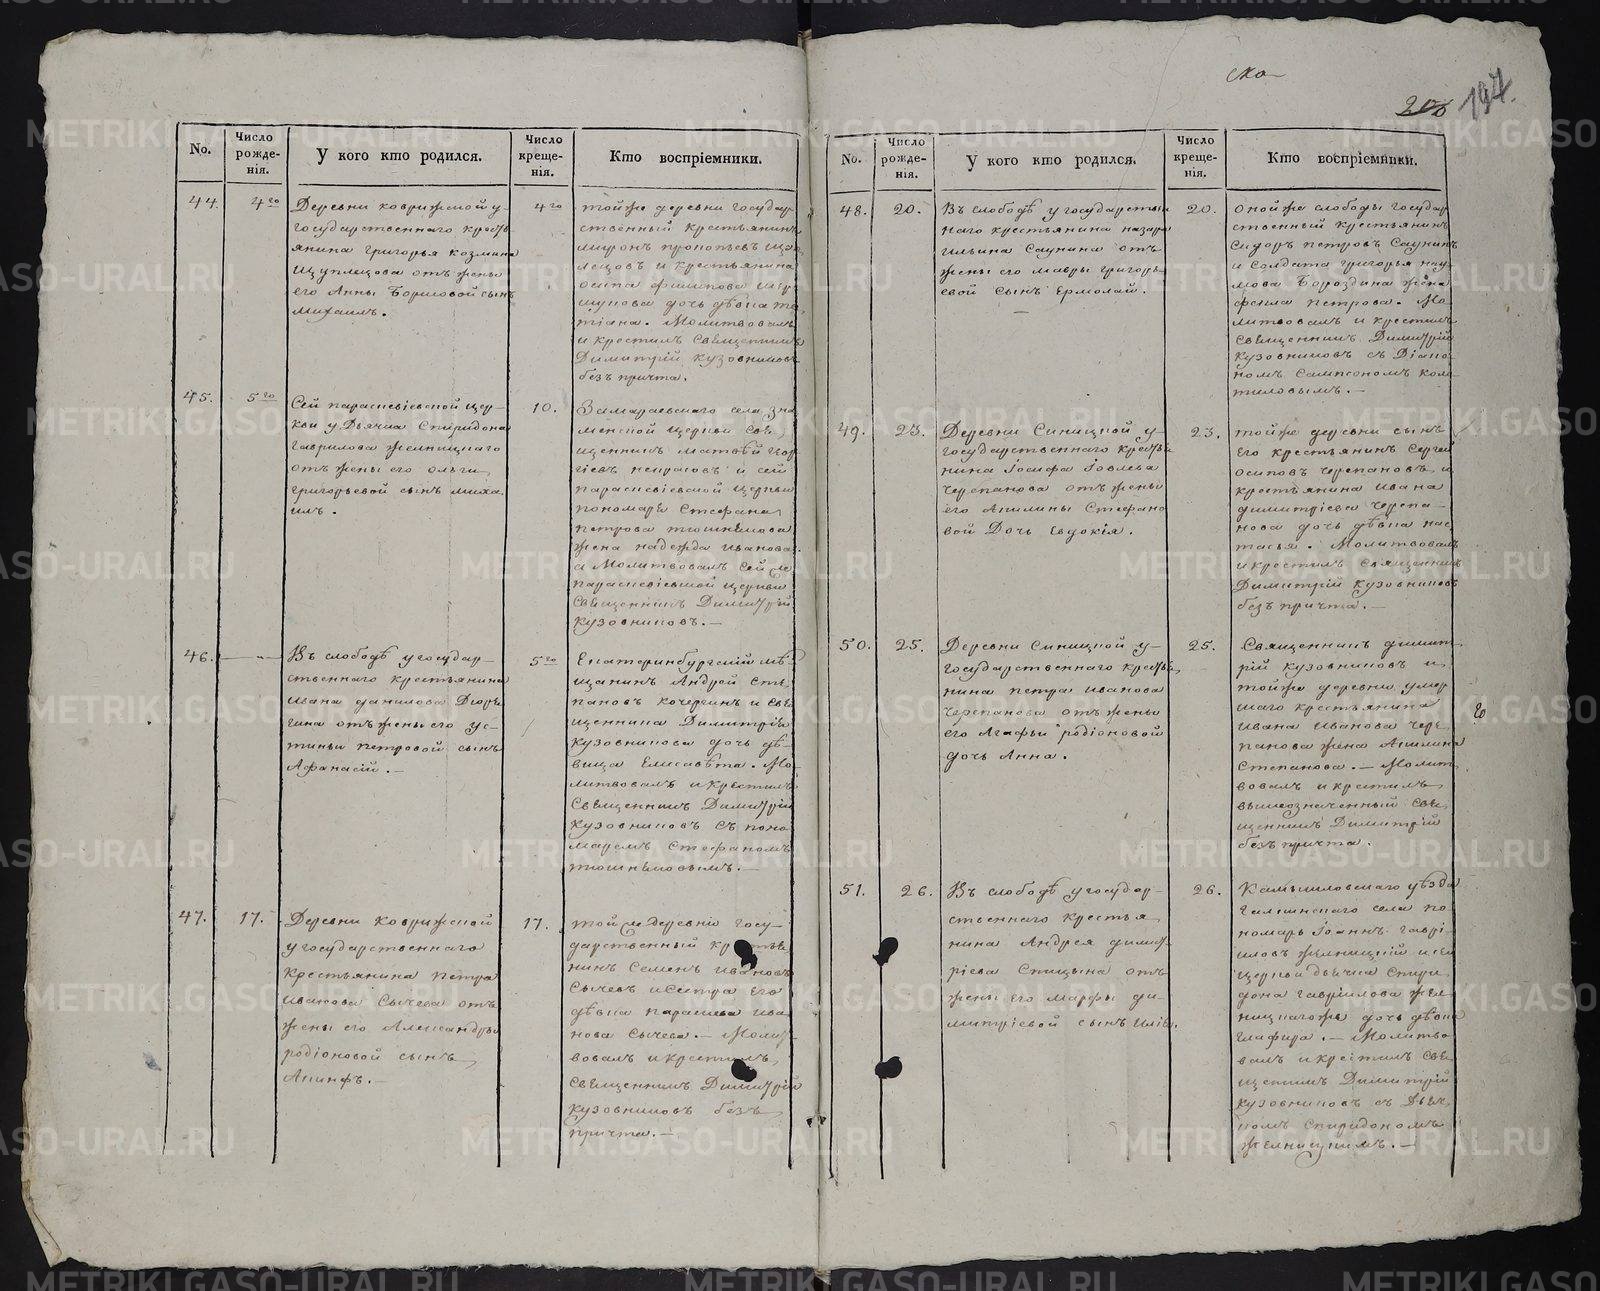 ско
200 197.
No.
Число рожде-нія.
У кого кто родился.
Число креще-нія.
Кто воспріемники.
44.
4го
Деревни коврижской у
государственнаго кресть
янина григорья козмина
щуплецова отъ жены
его Анны
сынъ
михаилъ.
4го
тойже деревни государ
ственный крестьянинъ
миронъ прокопьевъ
лецовъ и крестьянина
осипа филипова
дочь дѣвка та
тіана. Молитвовалъ
и крестилъ Священникъ
Димитрій кузовниковъ
безъ причта.
45.
5го
Сей параскевіевской цер-
кви у Дьячка Спиридона
гаврилова желницкаго
отъ жены его ольги
григорьевой сынъ миха
илъ.
10.
Замараевскаго села зна
менской церкви Свя
щенникъ матвѣй геор
гіевъ некрасовъ и сей
параскевіевской церкви
пономаря Стефана
петрова тюшнякова
жена надежда иванова.
а Молитвовалъ сей же
параскевіевской церкви
Священникъ Димитрій
кузовниковъ.—
46.
Въ слободѣ у государ-
ственнаго крестьянина
ивана данилова
отъ жены его ус-
тиньи петровой сынъ
Афанасій.—
5го
Екатеринбургскій мѣ-
щанинъ Андрей сте-
пановъ кочергинъ и свя
щенника Димитрія
кузовникова дочь дѣ-
вица Елисавѣта. Мо-
литвовалъ и крестилъ
Священникъ Димитрій
кузовниковъ съ поно
маремъ Стефаномъ
тюшняковымъ.—
47.
17.
Деревни Коврижской
у государственнаго
крестьянина петра
иванова Сычева отъ
жены его Александры
родіоновой сынъ
Акинфъ.—
17.
той же деревни госу-
дарственный крестья
нинъ Семенъ ивановъ
Сычевъ и сестра его
дѣвка параскева ива
нова Сычева.— Молит
вовалъ и крестилъ
Священникъ Димитрій
кузовниковъ безъ
причта.—
No.
Число рожде-нія.
У кого кто родился.
Число креще-нія.
Кто воспріемники.
48.
20.
Въ слободѣ у государствен
наго крестьянина назара
ильина Саунина отъ
жены его мавры григорь-
евой сынъ Ермолай.
20.
оной же слободы государ
ственный крестьянинъ
Сидоръ петровъ Саунинъ
и солдата григорья нау
мова Бороздина жена
фекла петрова. Мо
литвовалъ и крестилъ
Священникъ Димитрій
кузовниковъ съ Діако
номъ Сампсономъ
49.
23.
Деревни Синицкой у
государственнаго кресть
нина іосифа іовлева
Черепанова отъ жены
его Акилины Стефано
вой Дочь Евдокія.
23.
тойже деревни сынъ
его крестьянинъ Сергей
осиповъ черепановъ и
крестьянина ивана
димитріева черепа-
нова дочь дѣвка нас
тасья. Молитвовалъ
и крестилъ священникъ
Димитрій кузовниковъ
безъ причта.—
50.
25.
Деревни Синицкой у
государственнаго кресть
нина петра иванова
черепанова отъ жены
его Агафьи родіоновой
дочь Анна.
25.
Священникъ димит
рій кузовниковъ и
тойже деревни умер
шаго крестьянина
ивана иванова чере-
панова жена Акилина
степанова.— Молит
вовалъ и крестилъ
вышеозначенный свя
щенникъ Димитрій
безъ причта.
51.
26.
Въ слободѣ у государ-
ственнаго крестья
нина Андрея димит
ріева Спицына отъ
жены его марфы ди-
митріевой сынъ илія.
26.
Камышловскаго уѣзда
Галкинскаго села по
номарь іоаннъ гаврі
иловъ желницкій и сей
церкви дьячка спири
дона гавріилова жел
ницкагожъ дочь дѣвка
глафира.— Молитво
валъ и крестилъ свя
щенникъ Димитрій
кузовниковъ съ Дьяч
комъ Спиридономъ
желницкимъ.—
METRIKI.GASO-URAL.RU